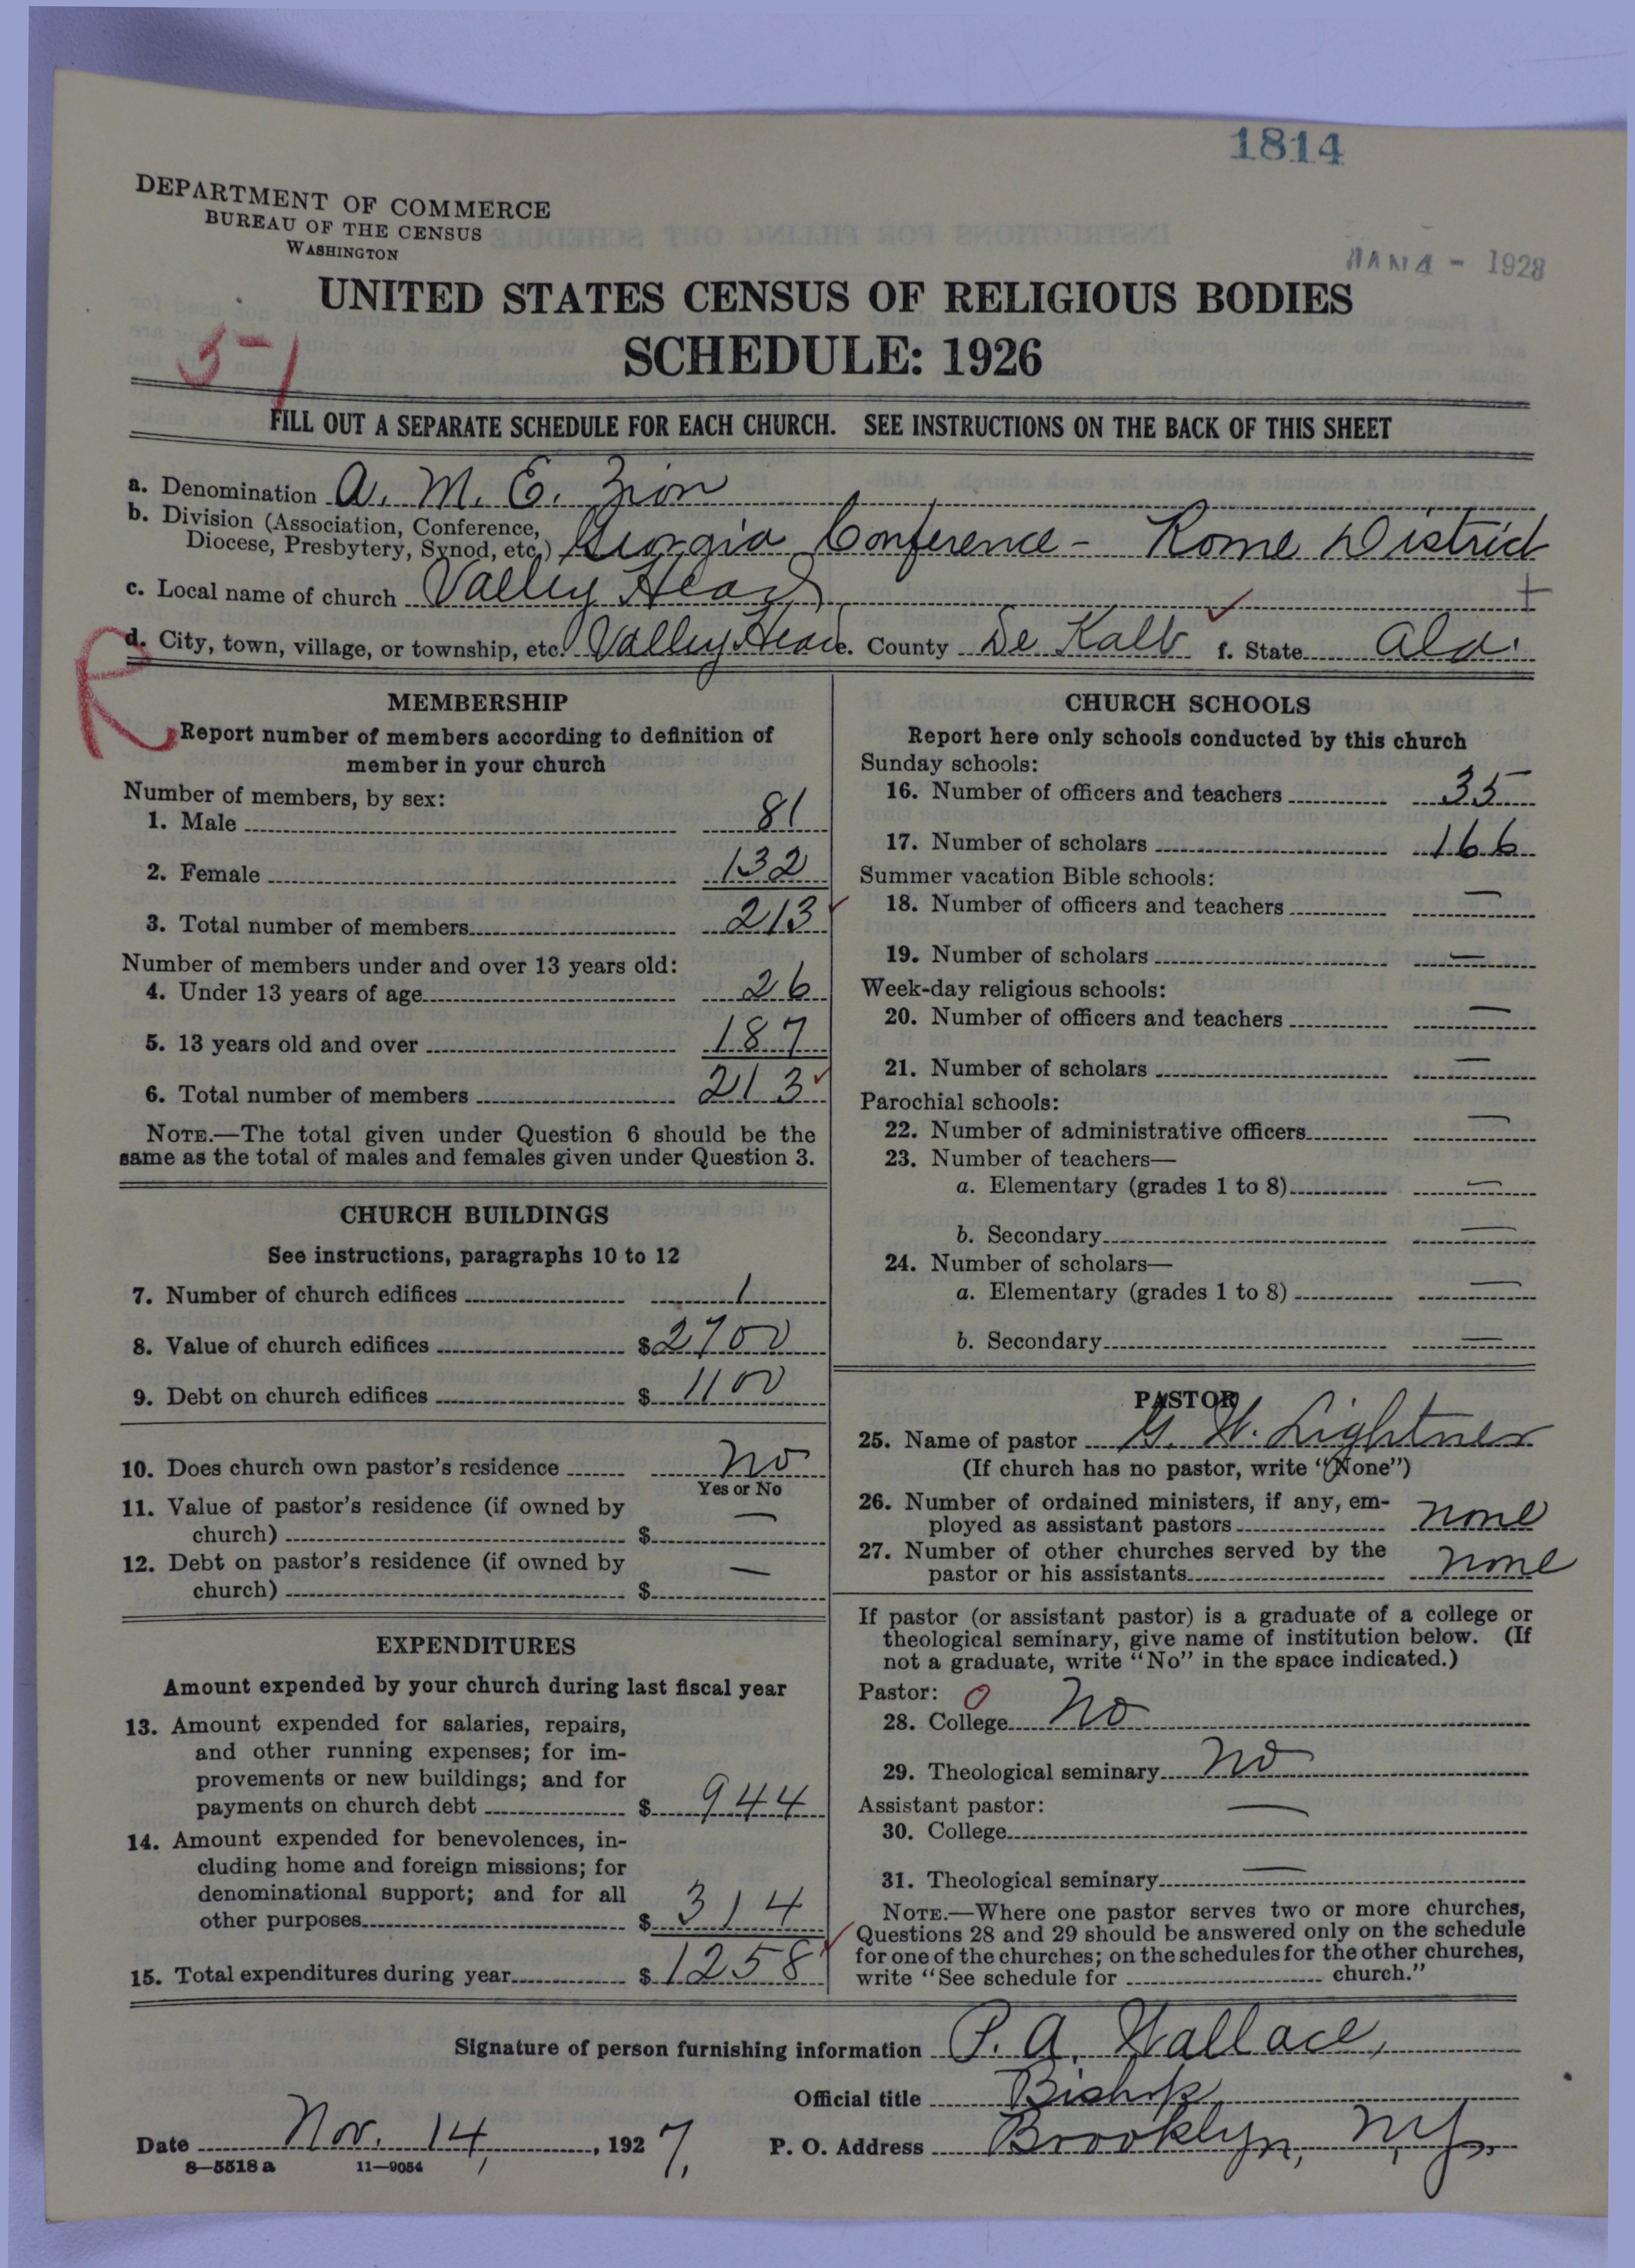 1814
DEPARTMENT OF COMMERCE
BUREAU OF THE CENSUS
WASHINGTON
JAN 4 - 1928
UNITED STATES CENSUS OF RELIGIOUS BODIES
SCHEDULE: 1926
5-1
FILL OUT A SEPARATE SCHEDULE FOR EACH CHURCH. SEE INSTRUCTIONS ON THE BACK OF THIS SHEET
a. Denomination A. M. E. Zion
b. Division (Association, Conference,
Diocese, Presbytery, Synod, etc.) Georgia Conference - Rome District
c. Local name of church Valley Head
d. City, town, village, or township, etc. Valley Head e. County De Kalb f. State Ala.
R
MEMBERSHIP
Report number of members according to definition of
member in your church
Number of members, by sex:
1. Male 81
2. Female 132
3. Total number of members 213
Number of members under and over 13 years old:
4. Under 13 years of age 26
5. 13 years old and over 187
6. Total number of members 213
NOTE.—The total given under Question 6 should be the
same as the total of males and females given under Question 3.
CHURCH BUILDINGS
See instructions, paragraphs 10 to 12
7. Number of church edifices 1
8. Value of church edifices $2700
9. Debt on church edifices $1100
10. Does church own pastor's residence No
Yes or No
11. Value of pastor's residence (if owned by
church) $ —
12. Debt on pastor's residence (if owned by
church) $ —
EXPENDITURES
Amount expended by your church during last fiscal year
13. Amount expended for salaries, repairs,
and other running expenses; for im-
provements or new buildings; and for
payments on church debt $ 944
14. Amount expended for benevolences, in-
cluding home and foreign missions; for
denominational support; and for all
other purposes $ 314
15. Total expenditures during year $1258
CHURCH SCHOOLS
Report here only schools conducted by this church
Sunday schools:
16. Number of officers and teachers 35
17. Number of scholars 166
Summer vacation Bible schools:
18. Number of officers and teachers —
19. Number of scholars —
Week-day religious schools:
20. Number of officers and teachers —
21. Number of scholars —
Parochial schools:
22. Number of administrative officers —
23. Number of teachers—
a. Elementary (grades 1 to 8) —
b. Secondary —
24. Number of scholars—
a. Elementary (grades 1 to 8) —
b. Secondary —
PASTOR
25. Name of pastor G. W. Lightner
(If church has no pastor, write "None")
26. Number of ordained ministers, if any, em-
ployed as assistant pastors none
27. Number of other churches served by the
pastor or his assistants none
If pastor (or assistant pastor) is a graduate of a college or
theological seminary, give name of institution below. (If
not a graduate, write "No" in the space indicated.)
Pastor: 0
28. College No
29. Theological seminary No
Assistant pastor:
30. College —
31. Theological seminary —
NOTE.—Where one pastor serves two or more churches,
Questions 28 and 29 should be answered only on the schedule
for one of the churches; on the schedules for the other churches,
write "See schedule for church."
Signature of person furnishing information P. A. Wallace,
Official title Bishop
Date Nov. 14, 1927, P. O. Address Brooklyn, N.Y.
8—5518 a 11—9054